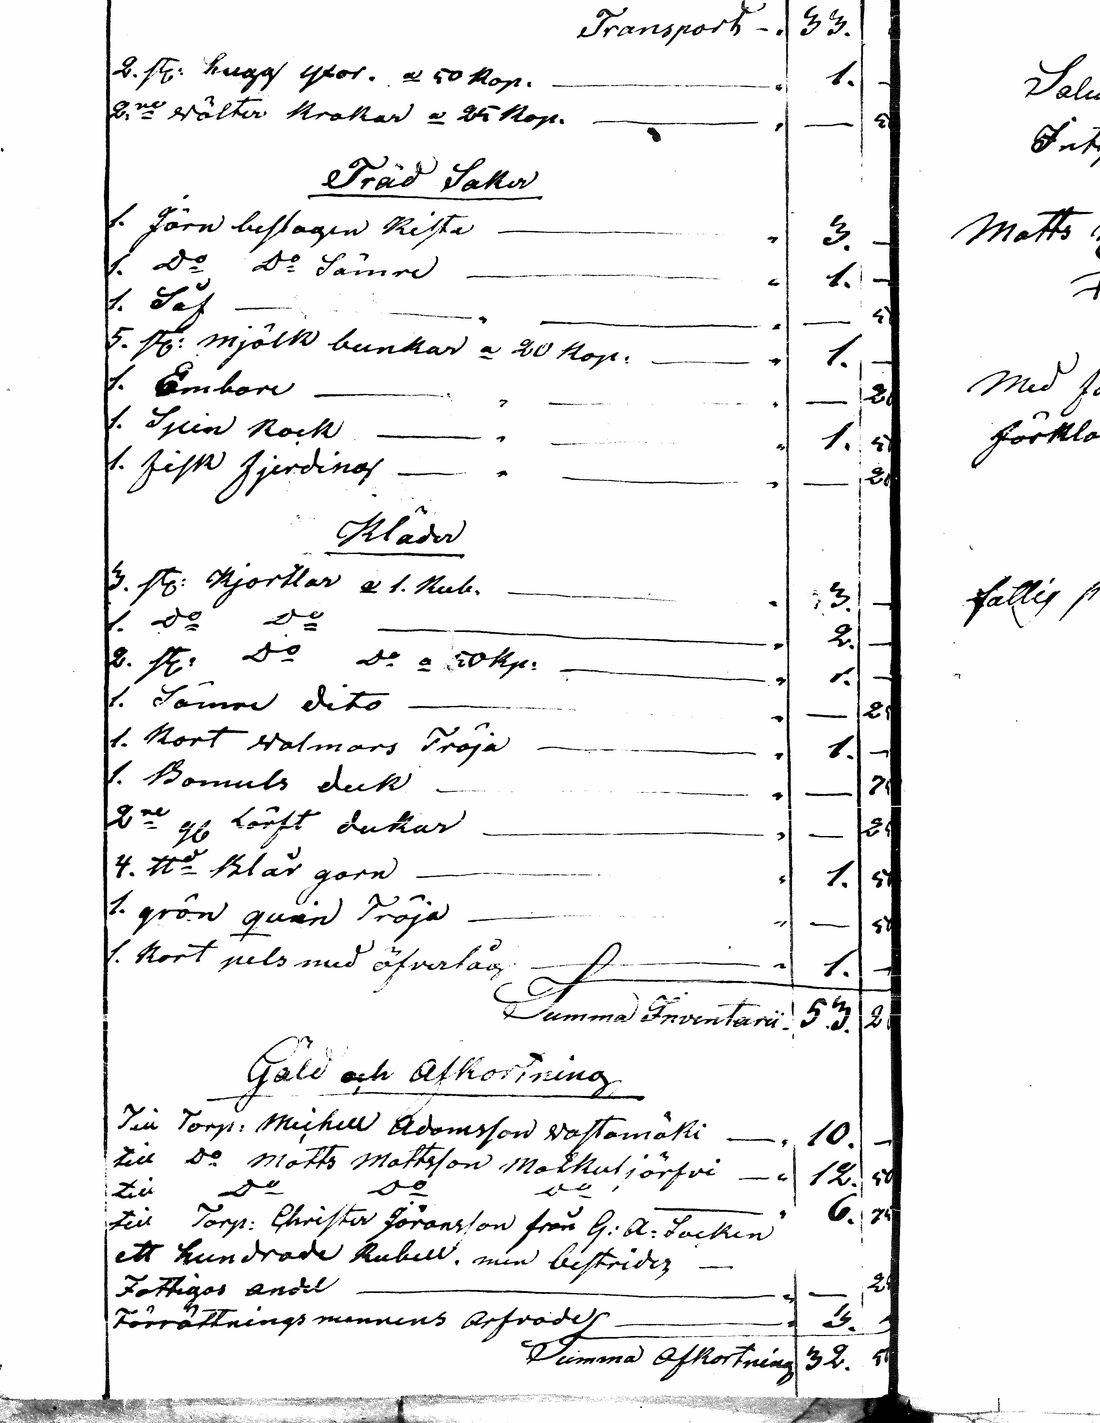 Transport - „ 33.
2. st: hugg yxor. a 50 Kop. „ 1. —
2ne Wälter Krokar a 25 Kop. „ — 5
Träd Saker
1. Järn beslagen Kista „ 3. —
1. Do Do Sämre „ 1. —
1. Såf „ — 5
5. st: mjölk bunkar a 20 Kop: „ 1. —
1. Embare „ — 2
1. Spin Rock „ 1. 5
1. fisk fjerding „ — 2
Kläder
3. st: Kjortlar a 1. Rub. „ 3. —
1. Do Do „ 2. —
2. st: Do Do a 50 Kp: „ 1. —
1. Sämre dito „ — 2
1. Kort walmars Tröja „ 1. —
1. Bomuls duk „ — 7
2ne gl Lärft dukar „ — 2
4. ttd Blår garn „ 1. 5
1. grön quin Tröja „ — 5
1. Kort pels med öfvertåg „ 1. —
Summa Inventarii 53. 2
Gäld och Afkortning
Till Torp: Michell Adamsson Wastamäki „ 10. —
till Do Matts Mattsson Malkusjärfvi „ 12. 50
till Do Do Do „ 6. 75
till Torp: Christer Göransson från G: A: Socken
ett hundrade Rubell. men bestrides —
Fattigas andel „ — 2
Förrättningsmennens Arfvode „ 3. —
Summa Afkortning 32. 5
Matts
Med
förkla
fattig